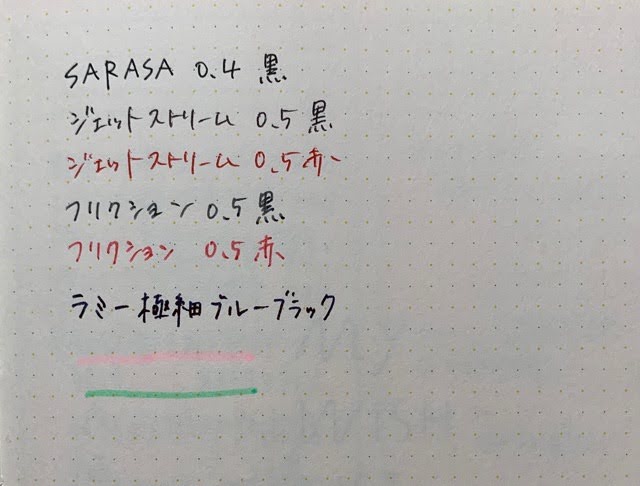 SARASA 0.4 黒
ジェットストリーム 0.5 黒
ジェットストリーム 0.5 赤
フリクション 0.5 黒
フリクション 0.5 赤
ラミー極細ブルーブラック